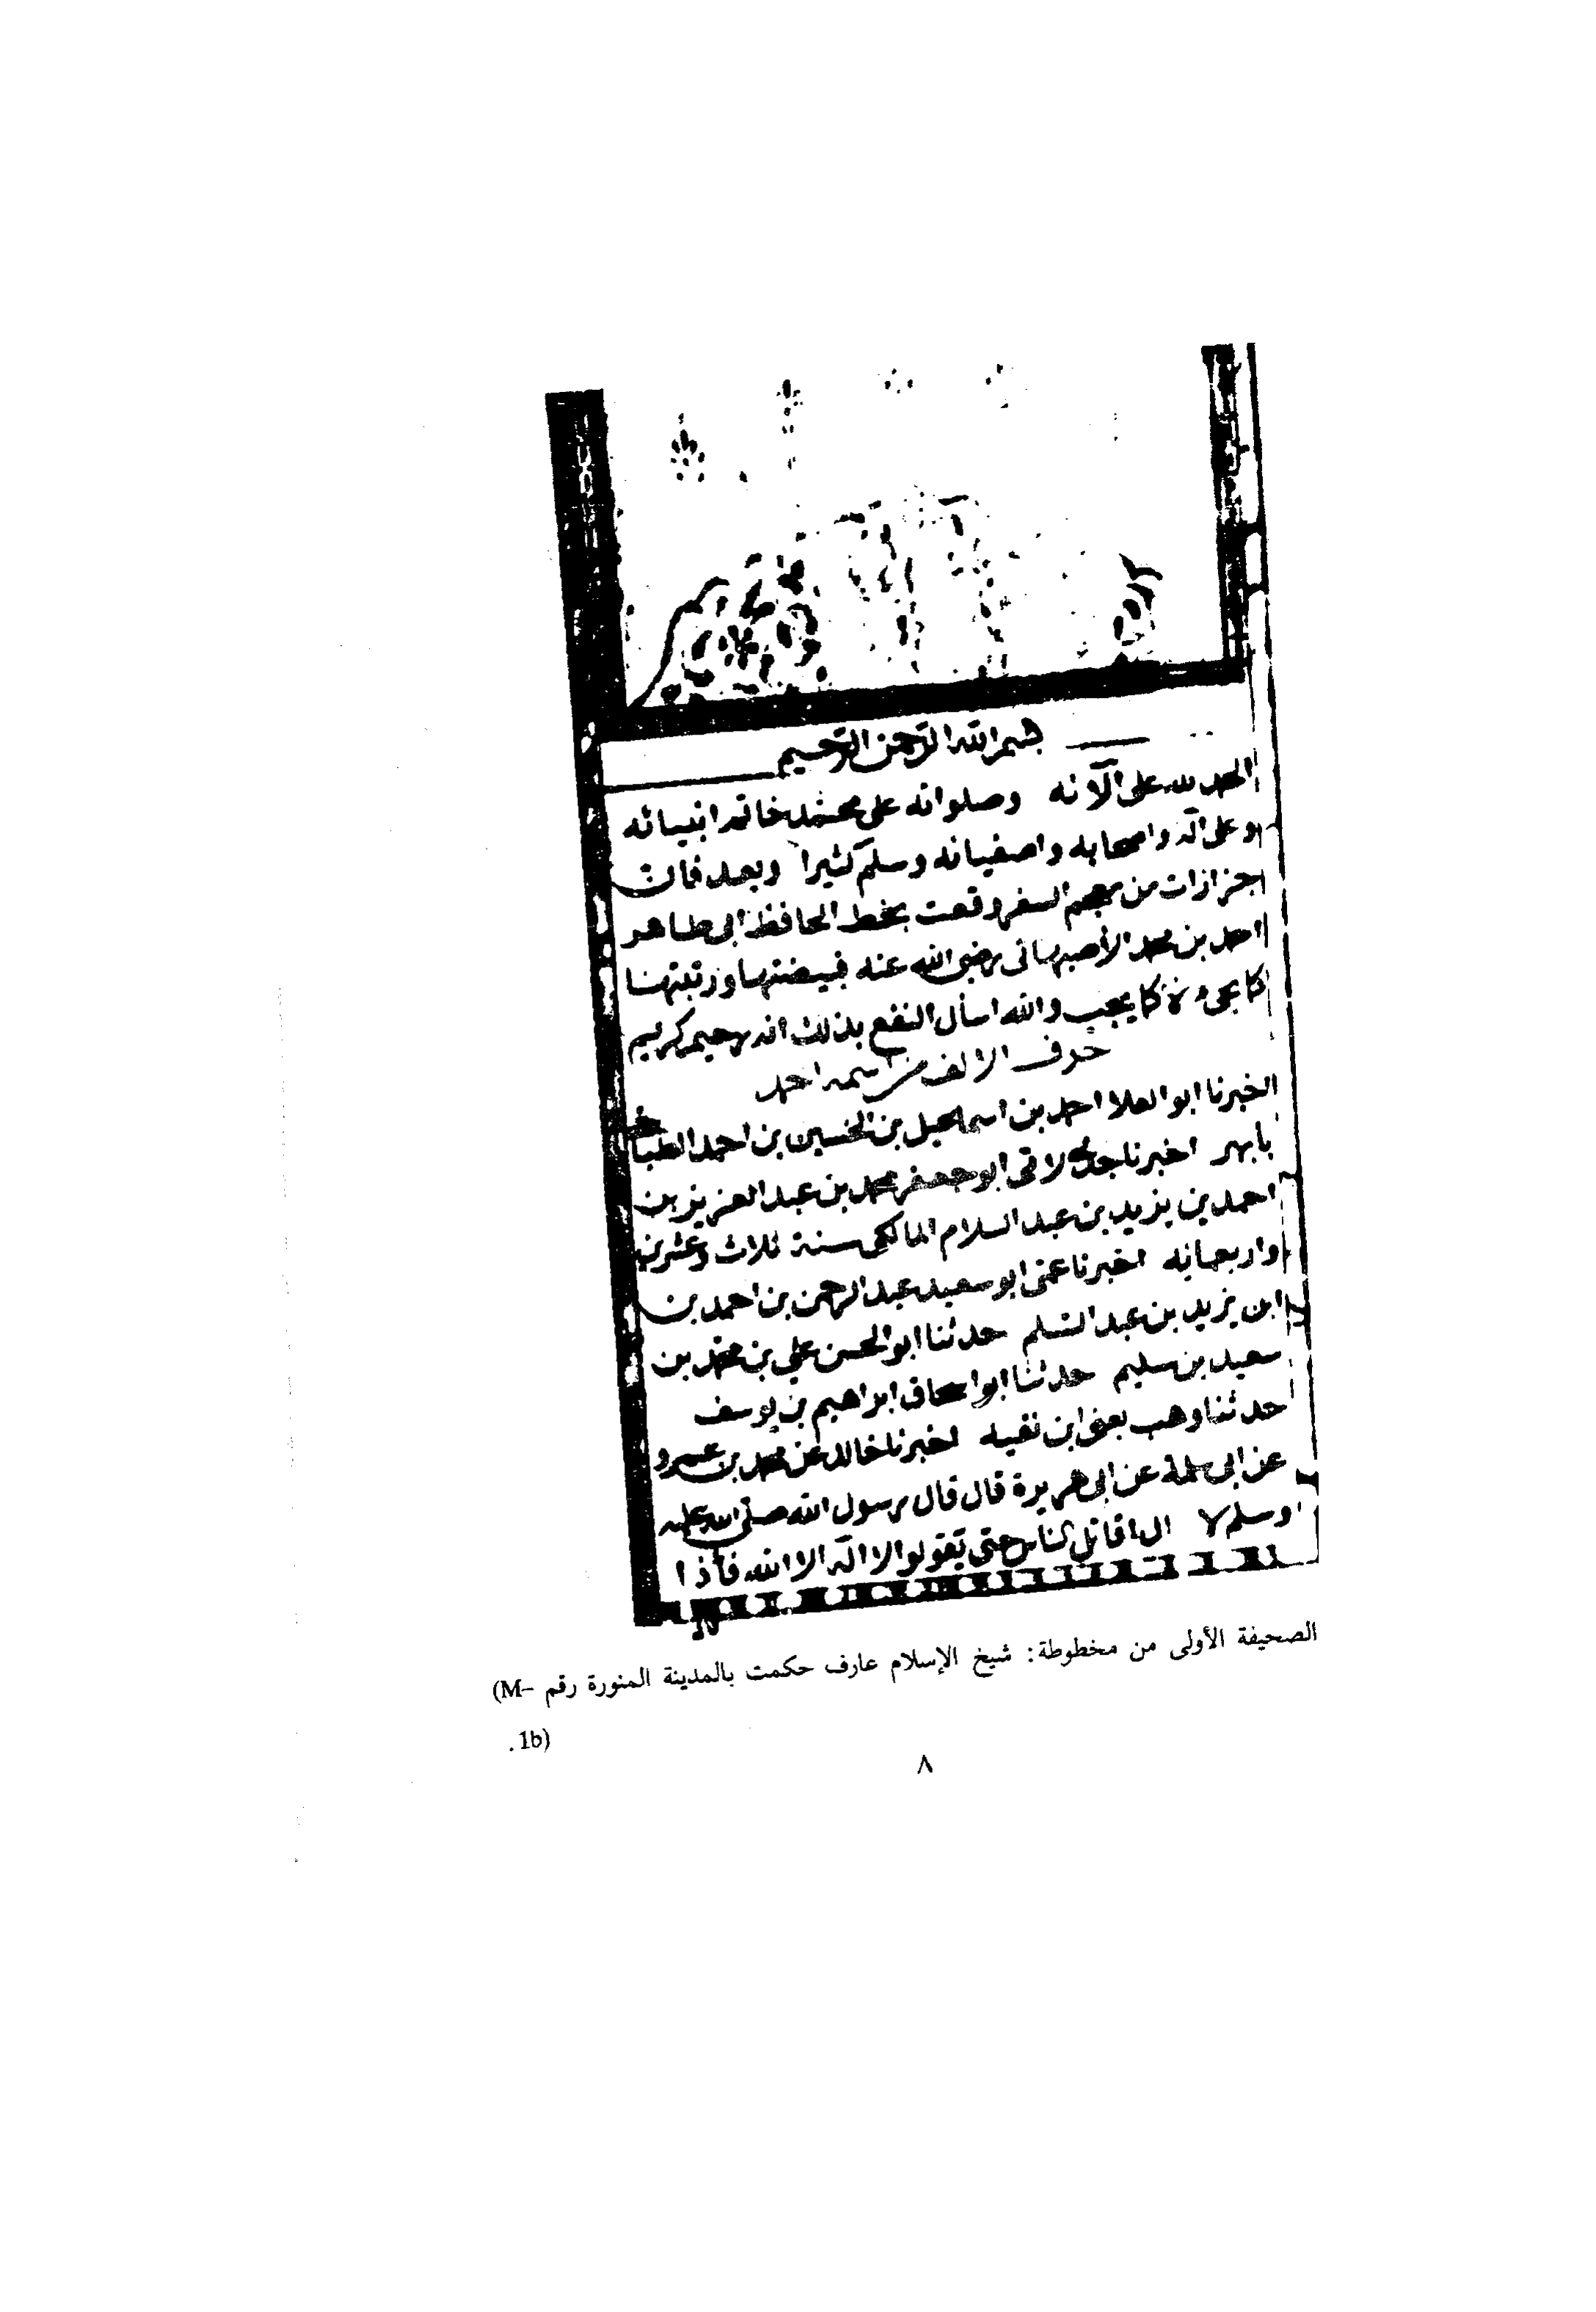 بسم الله الرحمن الرحيم
الحمد لله على آلائه وصلواته على محمد خاتم انبيائه
وعلى آله واصحابه واصفيائه وسلم كثيرا وبعد فان
جزازات من معجم السفر وقعت بخط الحافظ ابى طاهر
احمد بن محمد الأصبهانى رضى الله عنه فبيضتها ورتبتها
كما يجئ لا كما يجب والله اسأل النفع بذلك انه رحيم كريم
حرف الالف من اسمه احمد
اخبرنا ابو العلا احمد بن اسماعيل بن الحسين بن احمد الطباخ
بابهر اخبرنا جدى لامى ابو جعفر محمد بن عبد العزيز بن
احمد بن يزيد بن عبد السلام المالكى سنة ثلاث وعشرين
واربعمائه اخبرنا عمى ابو سعيد عبد الرحمن بن احمد بن
ابن يزيد بن عبد السلم حدثنا ابو الحسن على بن محمد بن
سعيد بن سليم حدثنا ابو اسحاق ابراهيم بن يوسف
حدثنا وهب يعنى ابن بقيه اخبرنا خالد عن محمد بن عمرو
عن ابى سلمة عن ابى هريرة قال قال رسول الله صلى الله عليه
وسلم لا ازال اقاتل الناس حتى يقولوا لا اله الا الله فأذا
الصحيفة الأولى من مخطوطة: شيخ الإسلام عارف حكمت بالمدينة المنورة رقم (M-
1b).
٨